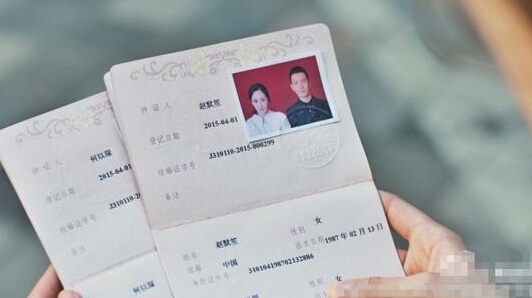 持证人 何以琛
登记日期 2015-04-01
结婚证字号 J310110-20
备注
何以琛
持证人 赵默笙
登记日期 2015-04-01
结婚证字号 J310110-2015-000299
备注
姓名 赵默笙 性别 女
国籍 中国 出生日期 1987年02月13日
身份证件号 310104198702132886
女